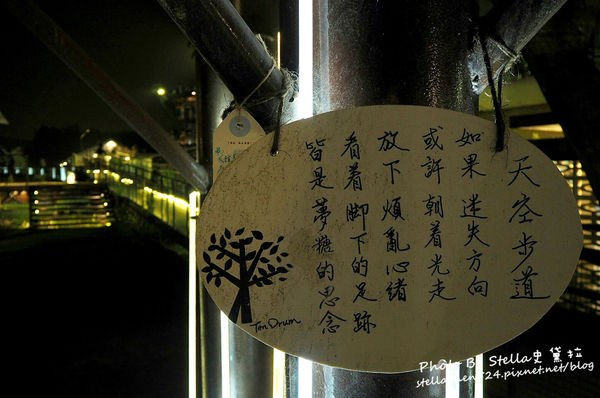 天空步道
如果 迷失方向
或許 朝着光走
放下 煩亂心緒
看着 脚下的足跡
皆是 夢糖的思念
Ten Drum
Photo By Stella史黛拉